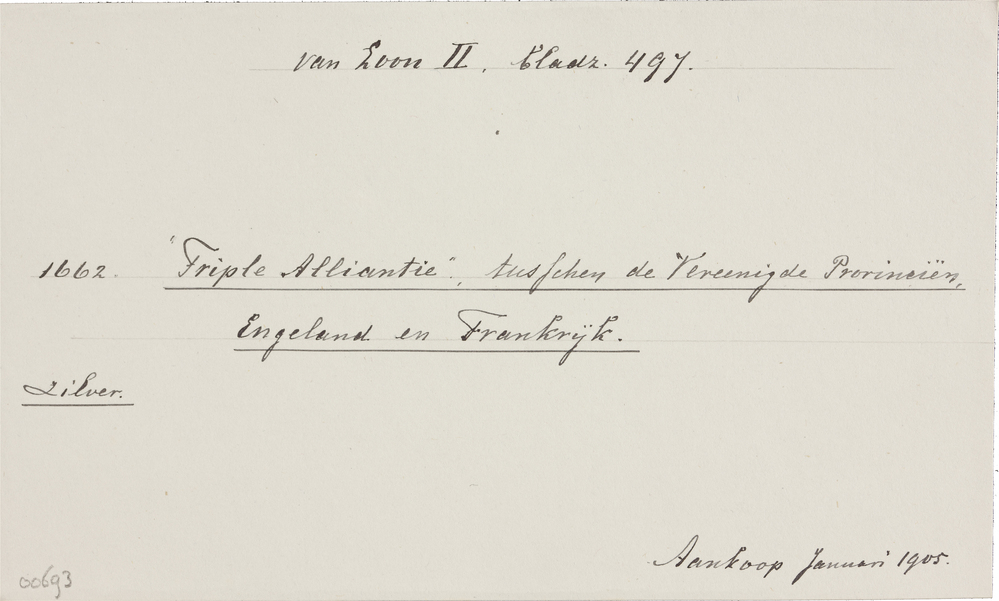 van Loon II, bladz. 497.
1662. "Triple Alliantie", tusschen de Vereenigde Provinciën,
Engeland en Frankrijk.
Zilver.
Aankoop Januari 1905.
00693